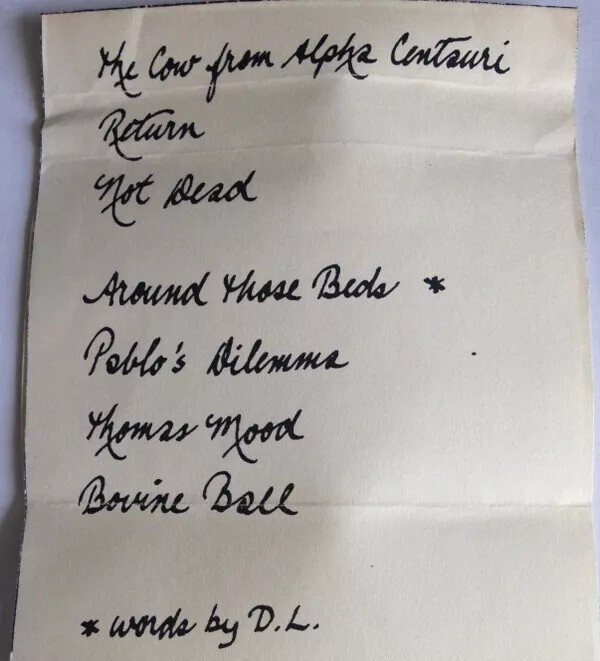 The Cow from Alpha Centauri
Return
Not Dead
Around Those Beds *
Pablo's Dilemma
Thomas Mood
Bovine Ball
* words by D.L.